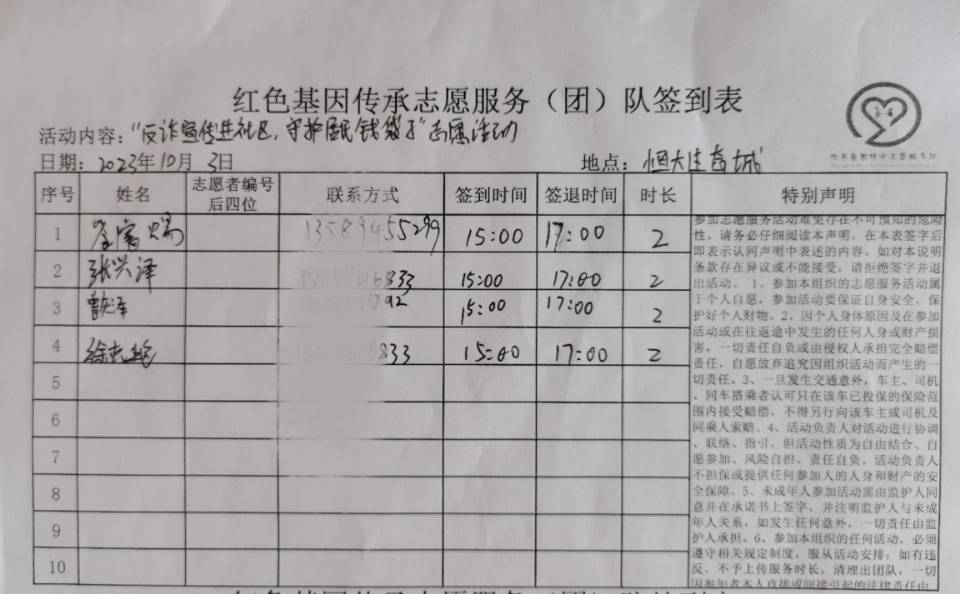 红色基因传承志愿服务（团）队签到表
活动内容："反诈宣传进社区，守护居民钱袋子"志愿活动
日期：2023年10月3日 地点：恒大生态城
序号 姓名 志愿者编号后四位 联系方式 签到时间 签退时间 时长 特别声明
1 15:00 17:00 2
2 张兴泽 833 15:00 17:00 2
3 92 15:00 17:00 2
4 徐志艳 833 15:00 17:00 2
5
6
7
8
9
10
参加志愿服务活动难免存在不可预知的危险
性。请务必仔细阅读本声明。在本表签字后
即表示认同声明中表述的内容。如对本说明
条款存在异议或不能接受，请拒绝签字并退
出活动。1、参加本组织的志愿服务活动属
于个人自愿，参加活动要保证自身安全，保
护好个人财物。2、因个人身体原因及在参加
活动或在往返途中发生的任何人身或财产损
害，一切责任自负或由侵权人承担完全赔偿
责任，自愿放弃追究因组织活动而产生的一
切责任。3、一旦发生交通意外，车主、司机
、同车搭乘者认可只在该车已投保的保险范
围内接受赔偿，不得另行向该车主或司机及
同乘人索赔。4、活动负责人对活动进行协调
、联络、指引，但活动性质为自由结合、自
愿参加、风险自担、责任自负。活动负责人
不担保或提供任何参加人的人身和财产的安
全保障。5、未成年人参加活动需由监护人同
意并在承诺书上签字，并注明监护人与未成
年人关系，如发生任何意外，一切责任由监
护人承担。6、参加本组织的任何活动，必须
遵守相关规定制度，服从活动安排；如有违
反，不予上传服务时长，清理出团队，一切
因参加者本人直接或间接引起的法律责任由